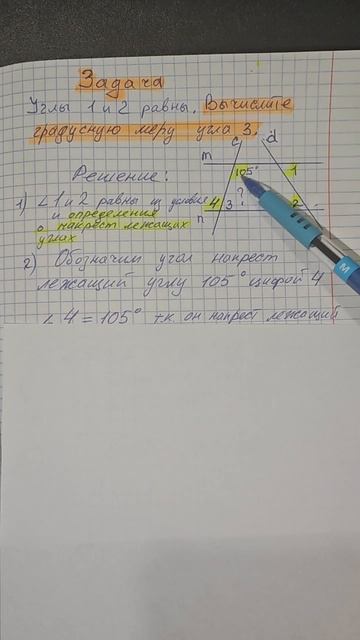 Задача
Углы 1 и 2 равны. Вычислите
градусную меру угла 3.
c d
m
105° 1
Решение:
1) ∠1 и 2 равны из условия
и определения
о накрест лежащих
углах
4 3 ? 2
n
2) Обозначим угол накрест
лежащий углу 105° цифрой 4
∠4 = 105° т.к. он накрест лежащий